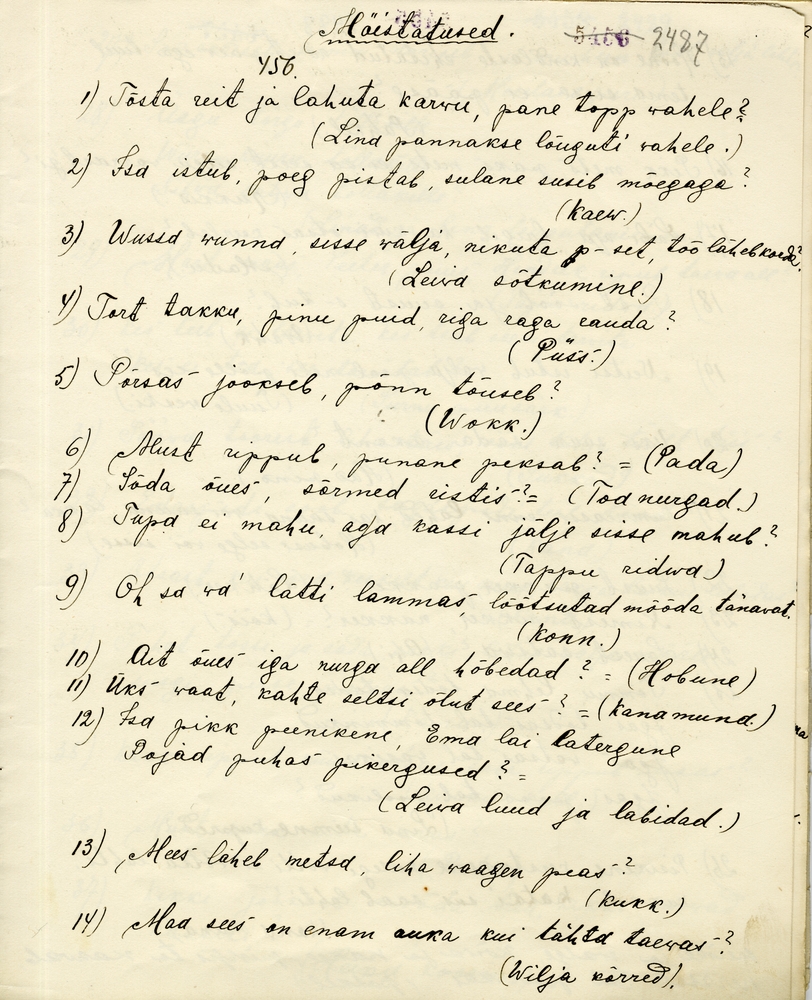 Mõistatused.
5456 2487
456.
1) Tõsta reit ja lahuta karwu, pane topp wahele?
(Lind pannakse lõuguti wahele.)
2) Isa istub, poeg pistab, sulane susib mõegaga?
(Kaew.)
3) Wussa wunna, sisse wälja, nikuta p-set, töö läheb korda?
(Leiwa sõtkumine.)
4) Tort takku, pinu puid, riga raga rauda?
(Püss.)
5) Põrsas jookseb, põnn tõuseb?
(Wokk.)
6) Must rippub, punane peksab? = (Pada)
7) Sõda õues, sõrmed ristis? = (Toa nurgad.)
8) Tupa ei mahu, aga kassi jälje sisse mahub?
(Tappu ridwa)
9) Oh sa wa' lätti lammas, löötsutad mööda tänawat.
(Konn.)
10) Ait õues iga nurga all hõbedad? = (Hobune)
11) Üks waat, kahte seltsi õlut sees? = (Kanamuna.)
12) Isa pikk peenikene, Ema lai latergune
Pojad puhas pikergused? =
(Leiwa luud ja labidad.)
13) Mees läheb metsa, liha waagen peas?
(Kukk.)
14) Maa sees on enam auka kui tähta taewas?
(Wilja kõrred).